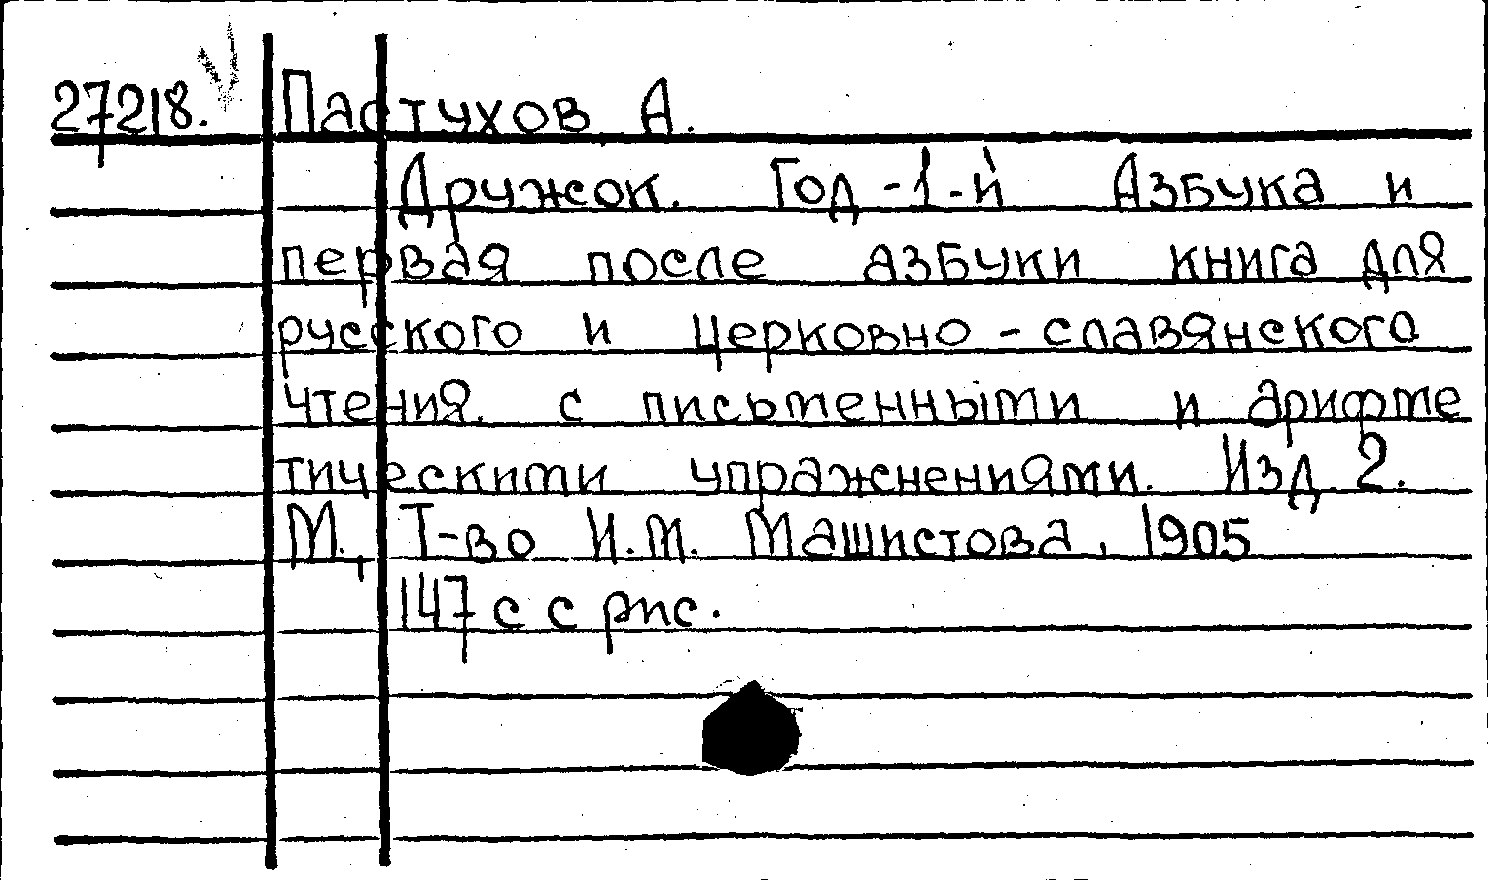 27218. Пастухов А.
Дружок. Год -1-й Азбука и
первая после азбуки книга для
русского и церковно - славянского
чтения. с письменными и арифме
тическими упражнениями. Изд. 2.
М., Т-во И.М. Машистова, 1905
147 с с рис.